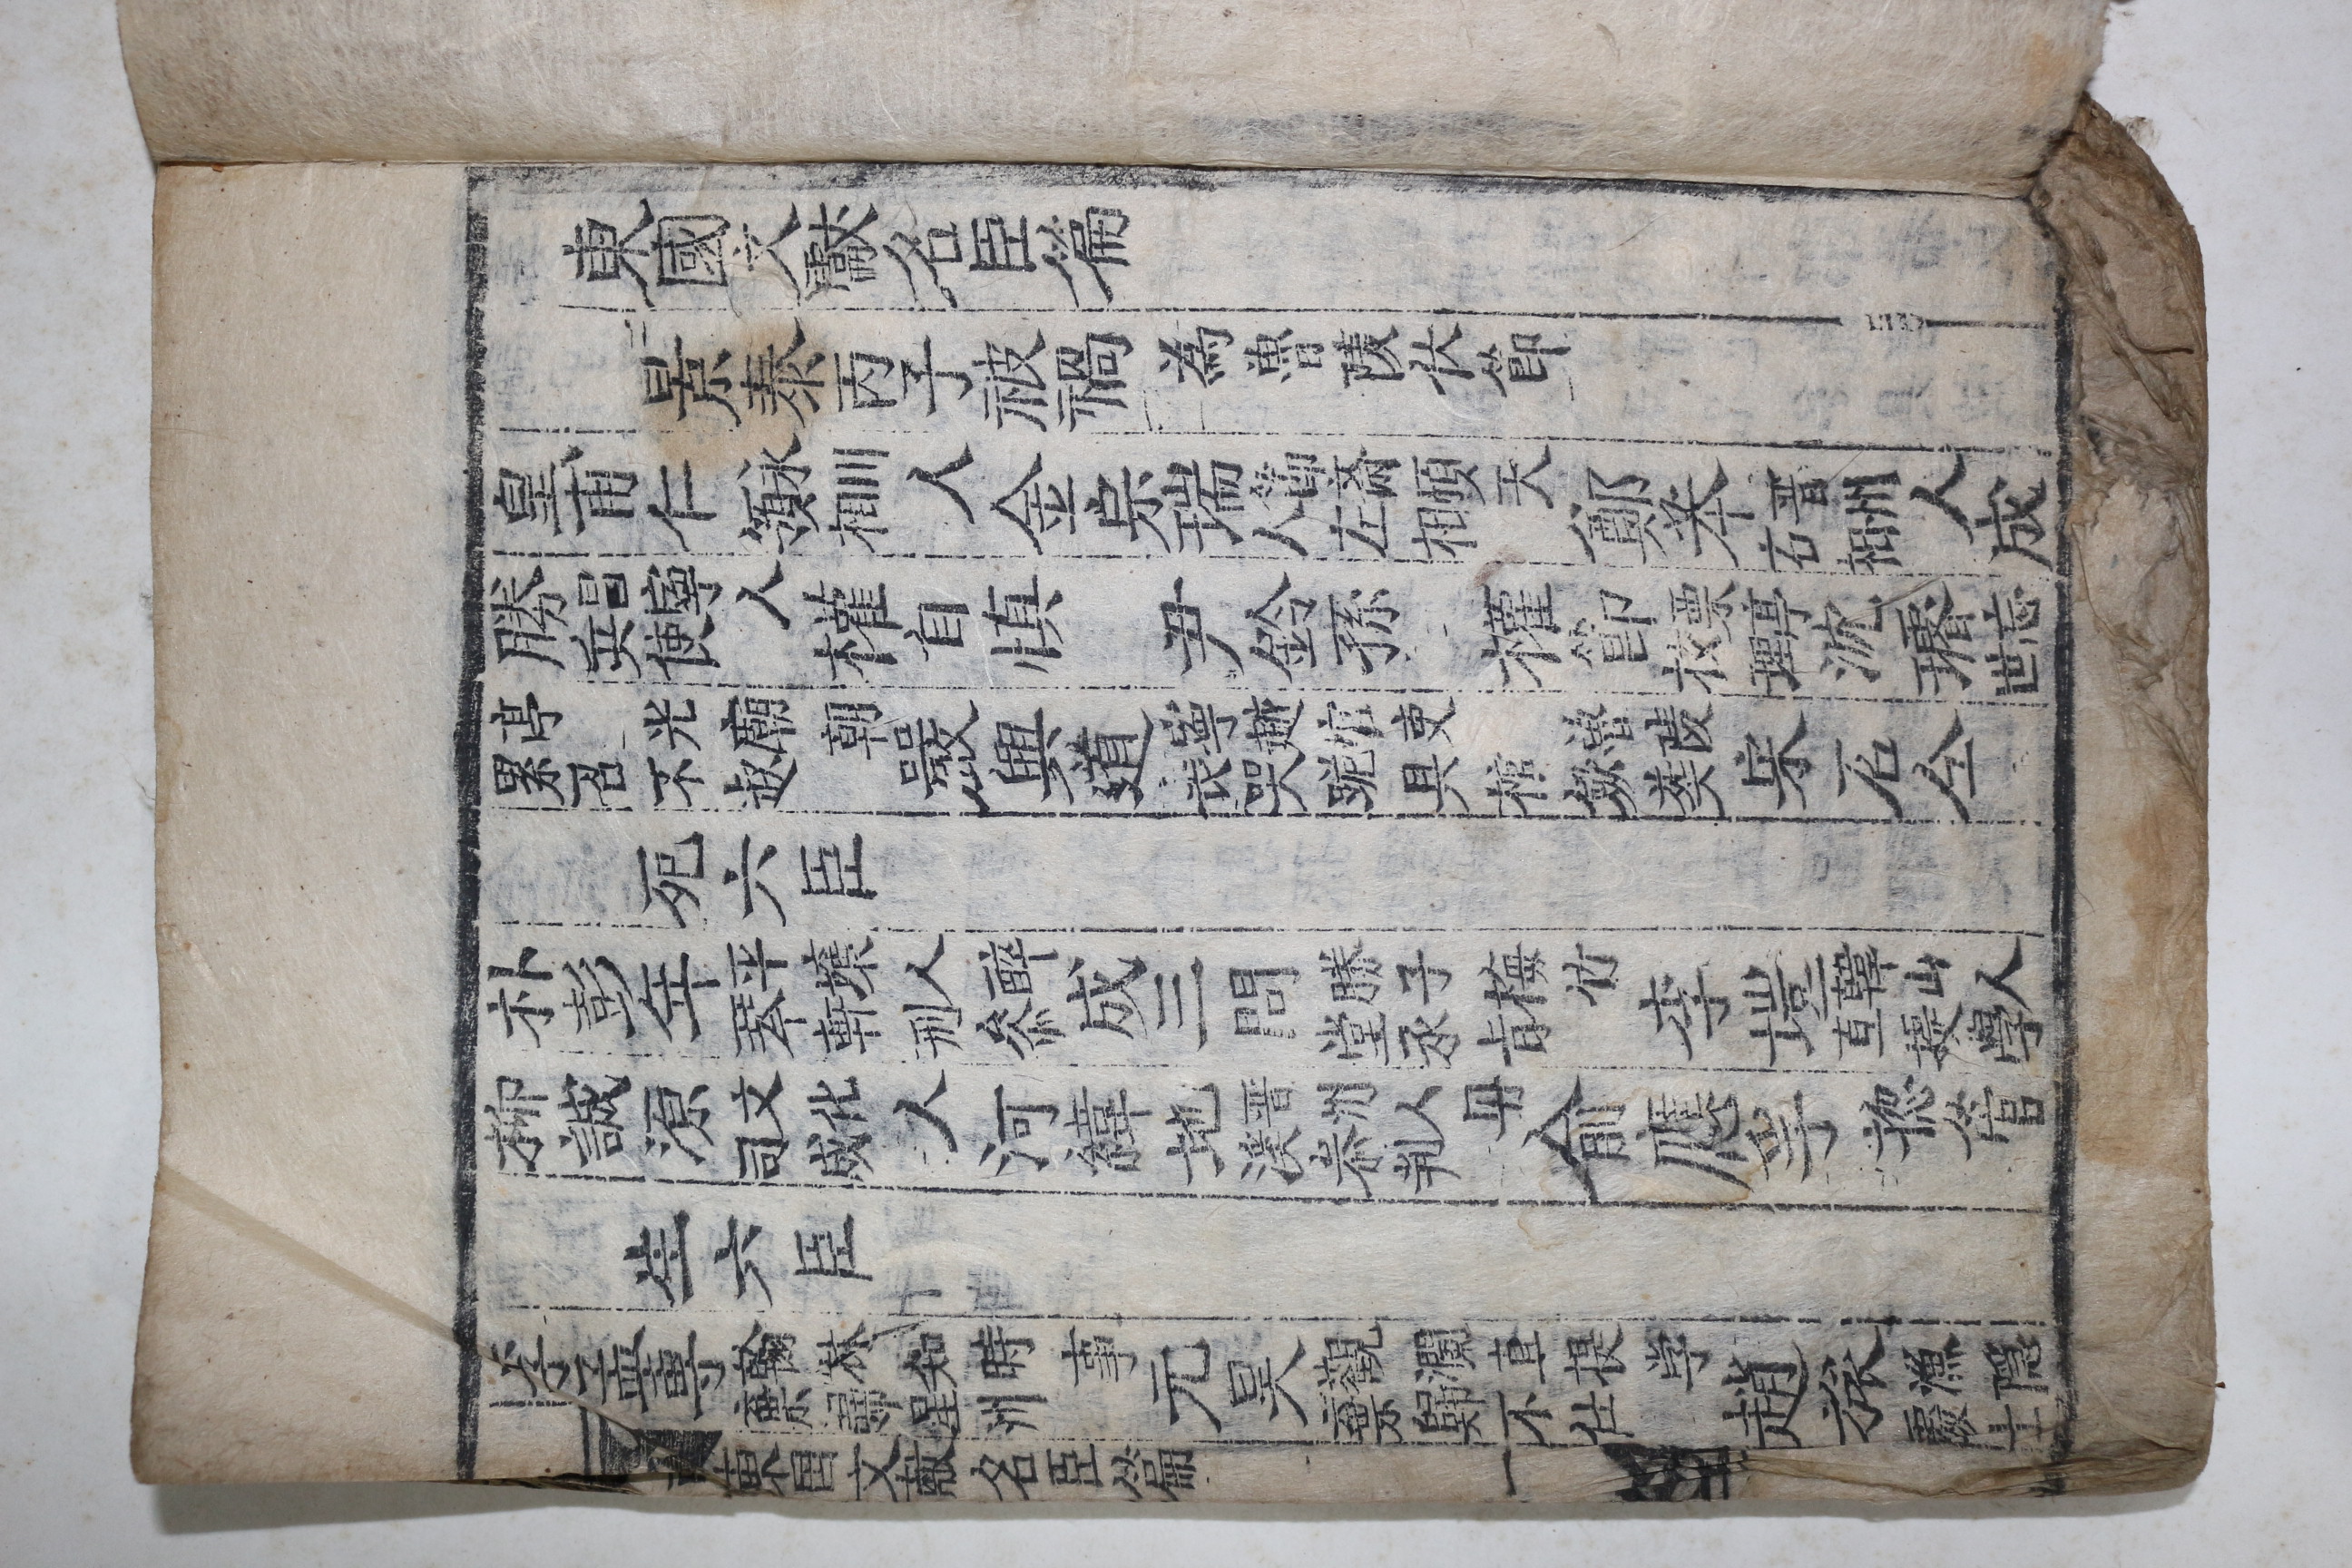 東國文獻名臣篇
景泰丙子被禍 為魯陵伏節
皇甫仁 永川人領相 金宗瑞 節齋順天人左相 鄭苯 晋州人右相 成
勝 昌寧人兵使 權自慎 尹鈴孫 權節 票亭校理 沈璿 忘世
亭光廟朝累召不起 嚴興道 寧越官吏魯陵丧哭跪具棺斂葬 宋石仝
死六臣
朴彭年 平壤人醉琴軒刑參 成三問 勝子梅竹堂承旨 李塏 韓山人直提學
柳誠源 文化人司成 河緯地 晋州人丹溪参判 俞應孚 摠管
生六臣
李孟專 翰林知時事棄歸星州 元昊 觀瀾直提学棄歸不仕 趙旅 漁隱處士
東国文獻名臣篇 一